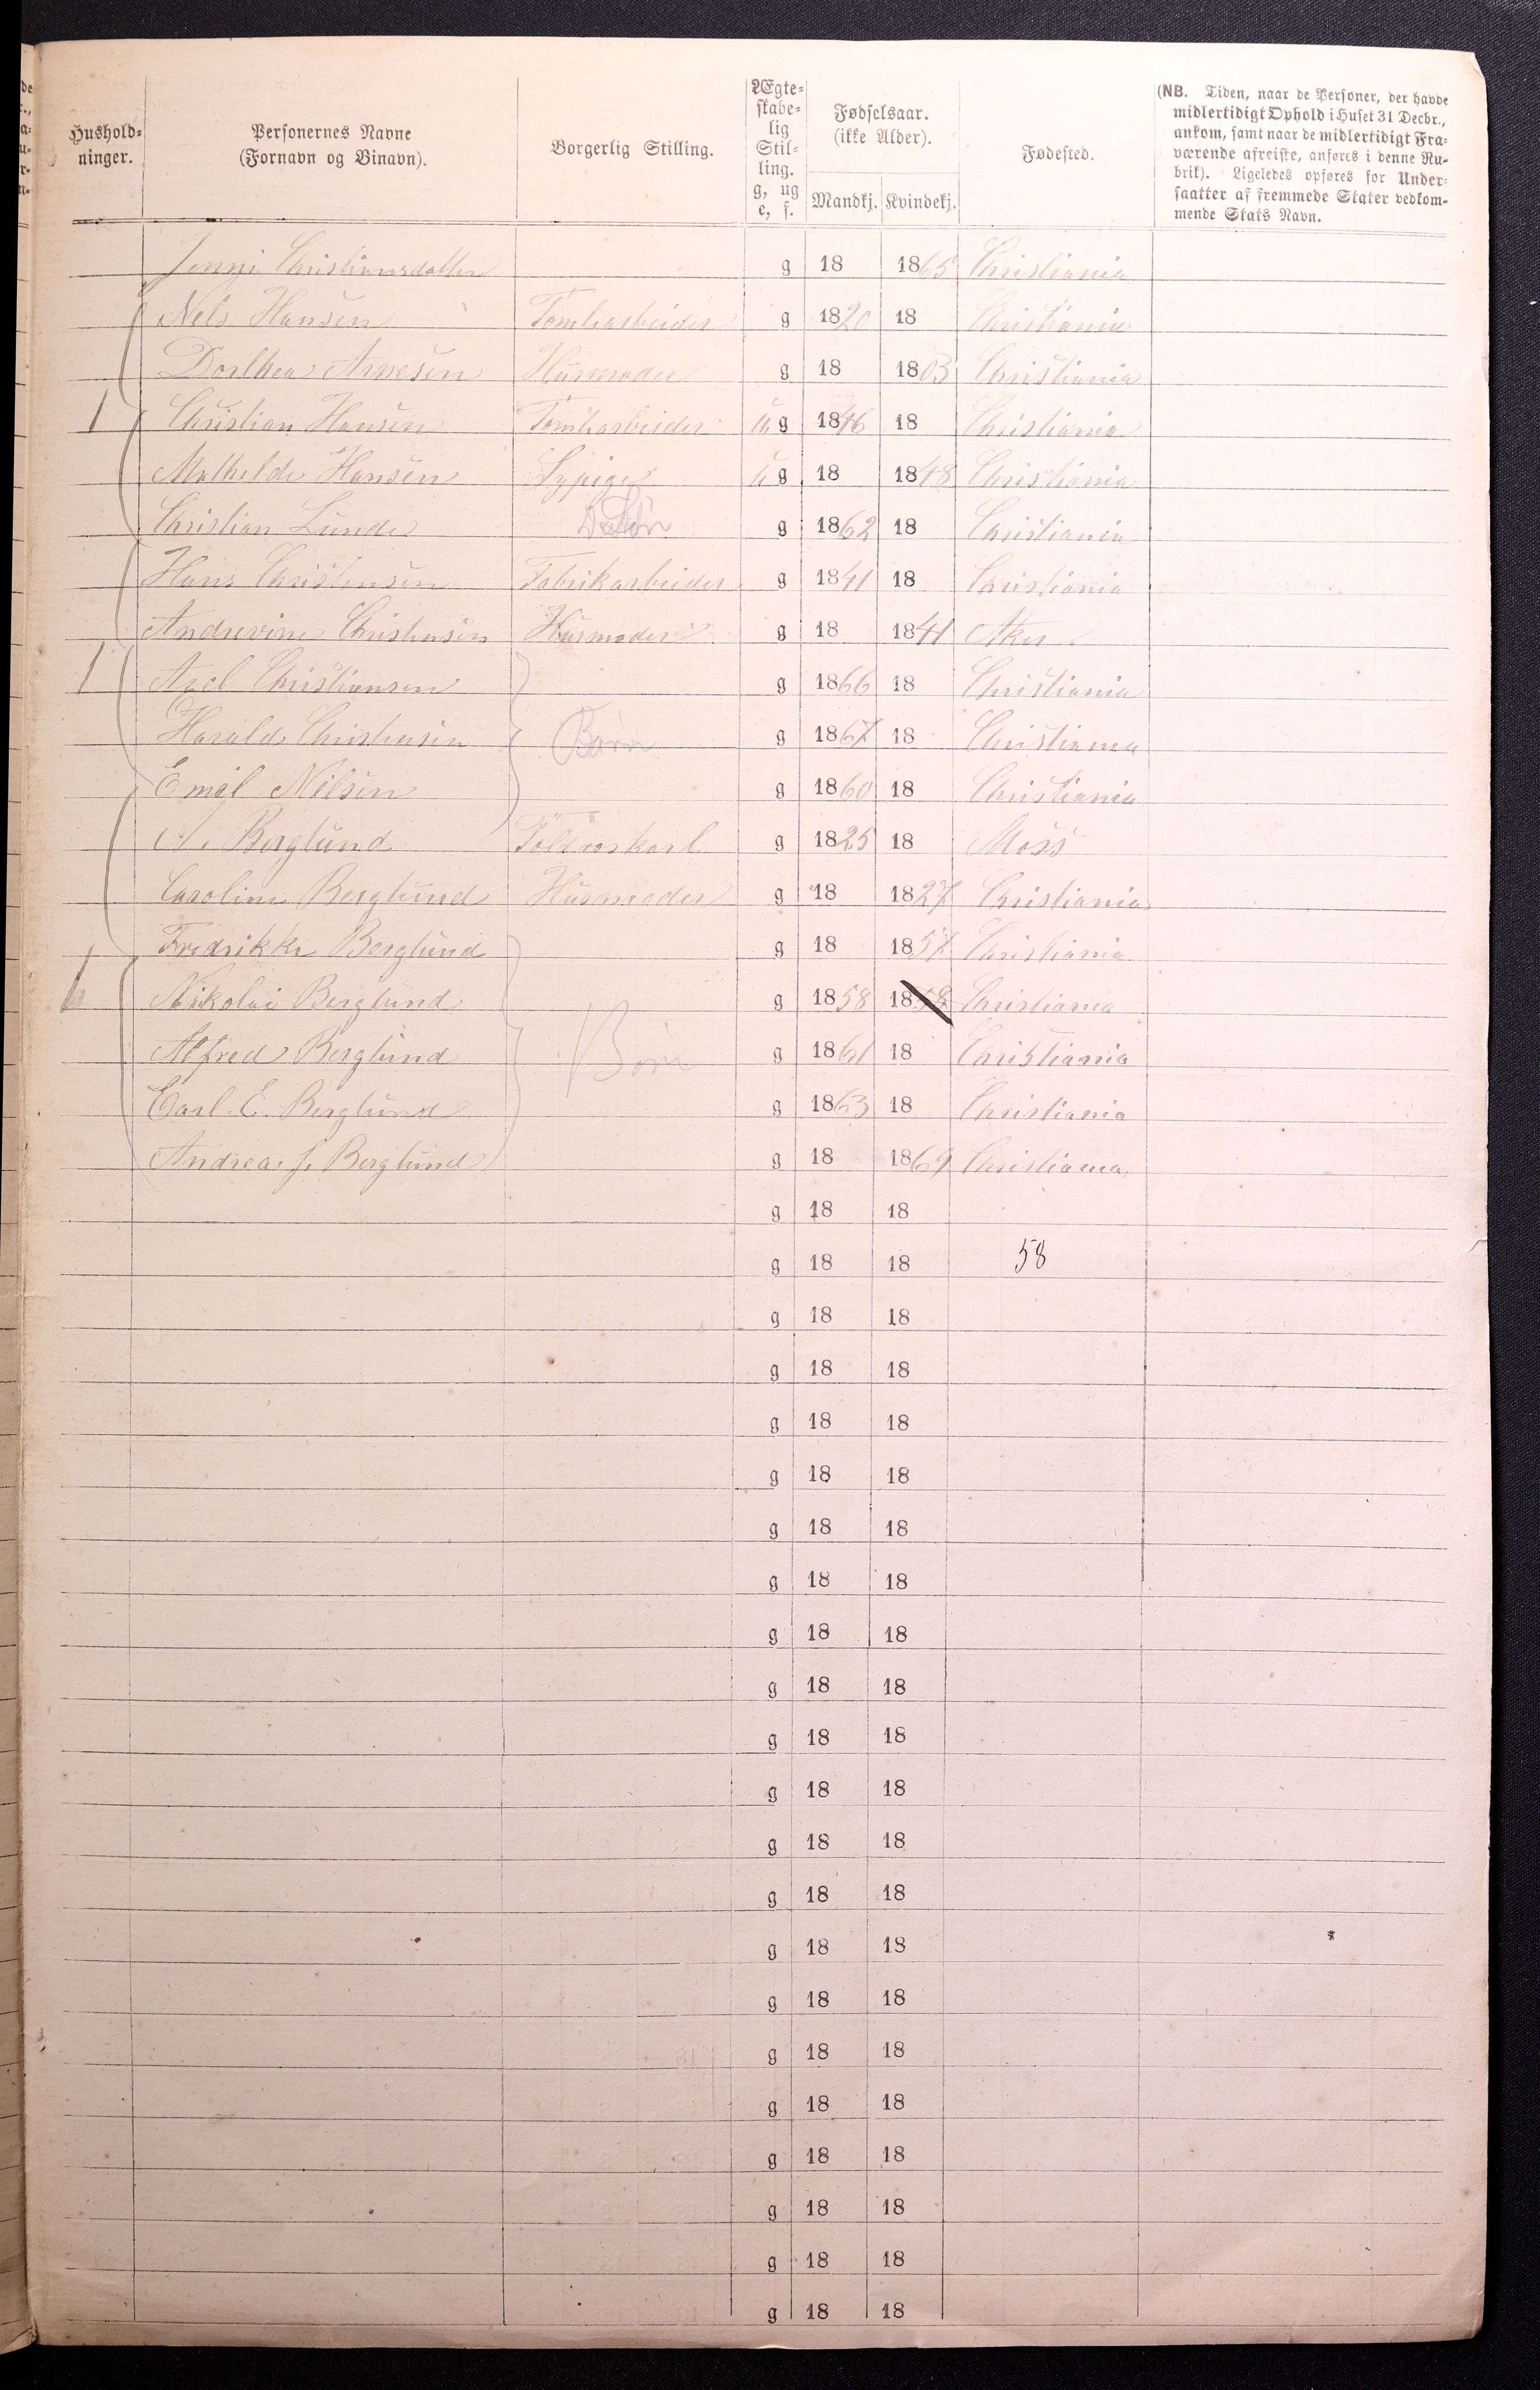 Hushold-
ninger.
Personernes Navne
(Fornavn og Binavn).
Borgerlig Stilling.
Ægte-
skabe-
lig
Stil-
ling.
g, ug
e, f.
Fødselsaar.
(ikke Alder).
Mandkj. Kvindekj.
Fødested.
(NB. Tiden, naar de Personer, der havde
midlertidigt Ophold i Huset 31 Decbr.,
ankom, samt naar de midlertidigt Fra-
værende afreiste, anføres i denne Ru-
brik). Ligeledes opføres for Under-
saatter af fremmede Stater vedkom-
mende Stats Navn.
Jenni Christiansdatter g 18 1865 Christiania
Nels Hansen Tomtarbeider g 1820 18 Christiania
Dorthea Arnesen Husmoder g 18 1803 Christiania
1 Christian Hansen Tomtarbeider u g 1846 18 Christiania
Mathilde Hansen Sypige u g 18 1848 Christiania
Christian Lunde Søn g 1862 18 Christiania
Hans Christensen Fabrikarbeider g 1841 18 Christiania
Andrerine Christensen Husmoder g 18 1841 Aker
1 Axel Christiansen g 1866 18 Christiania
Harald Christensen Børn g 1867 18 Christiania
Emil Nilsen g 1860 18 Christiania
A. Berglund g 1825 18 Moss
Caroline Berglund Husmoder g 18 1827 Christiania
Fredrikke Berglund g 18 1857 Christiania
1 Nikolai Berglund g 1858 1858 Christiania
Alfred Berglund Børn g 1861 18 Christiania
Carl E. Berglund g 1863 18 Christiania
Andrea J. Berglund g 18 1869 Christiania
g 18 18
g 18 18 58
g 18 18
g 18 18
g 18 18
g 18 18
g 18 18
g 18 18
g 18 18
g 18 18
g 18 18
g 18 18
g 18 18
g 18 18
g 18 18
g 18 18
g 18 18
g 18 18
g 18 18
g 18 18
g 18 18
g 18 18